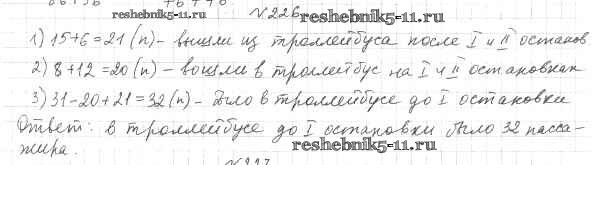 reshebnik5-11.ru
№226
reshebnik5-11.ru
1) 15+6=21 (п) - вышли из троллейбуса после I и II останов
2) 8+12=20 (п) - вошли в троллейбус на I и II остановках
3) 31-20+21=32 (п) - было в троллейбусе до I остановки
Ответ: в троллейбусе до I остановки было 32 пасса-
жира.
reshebnik5-11.ru